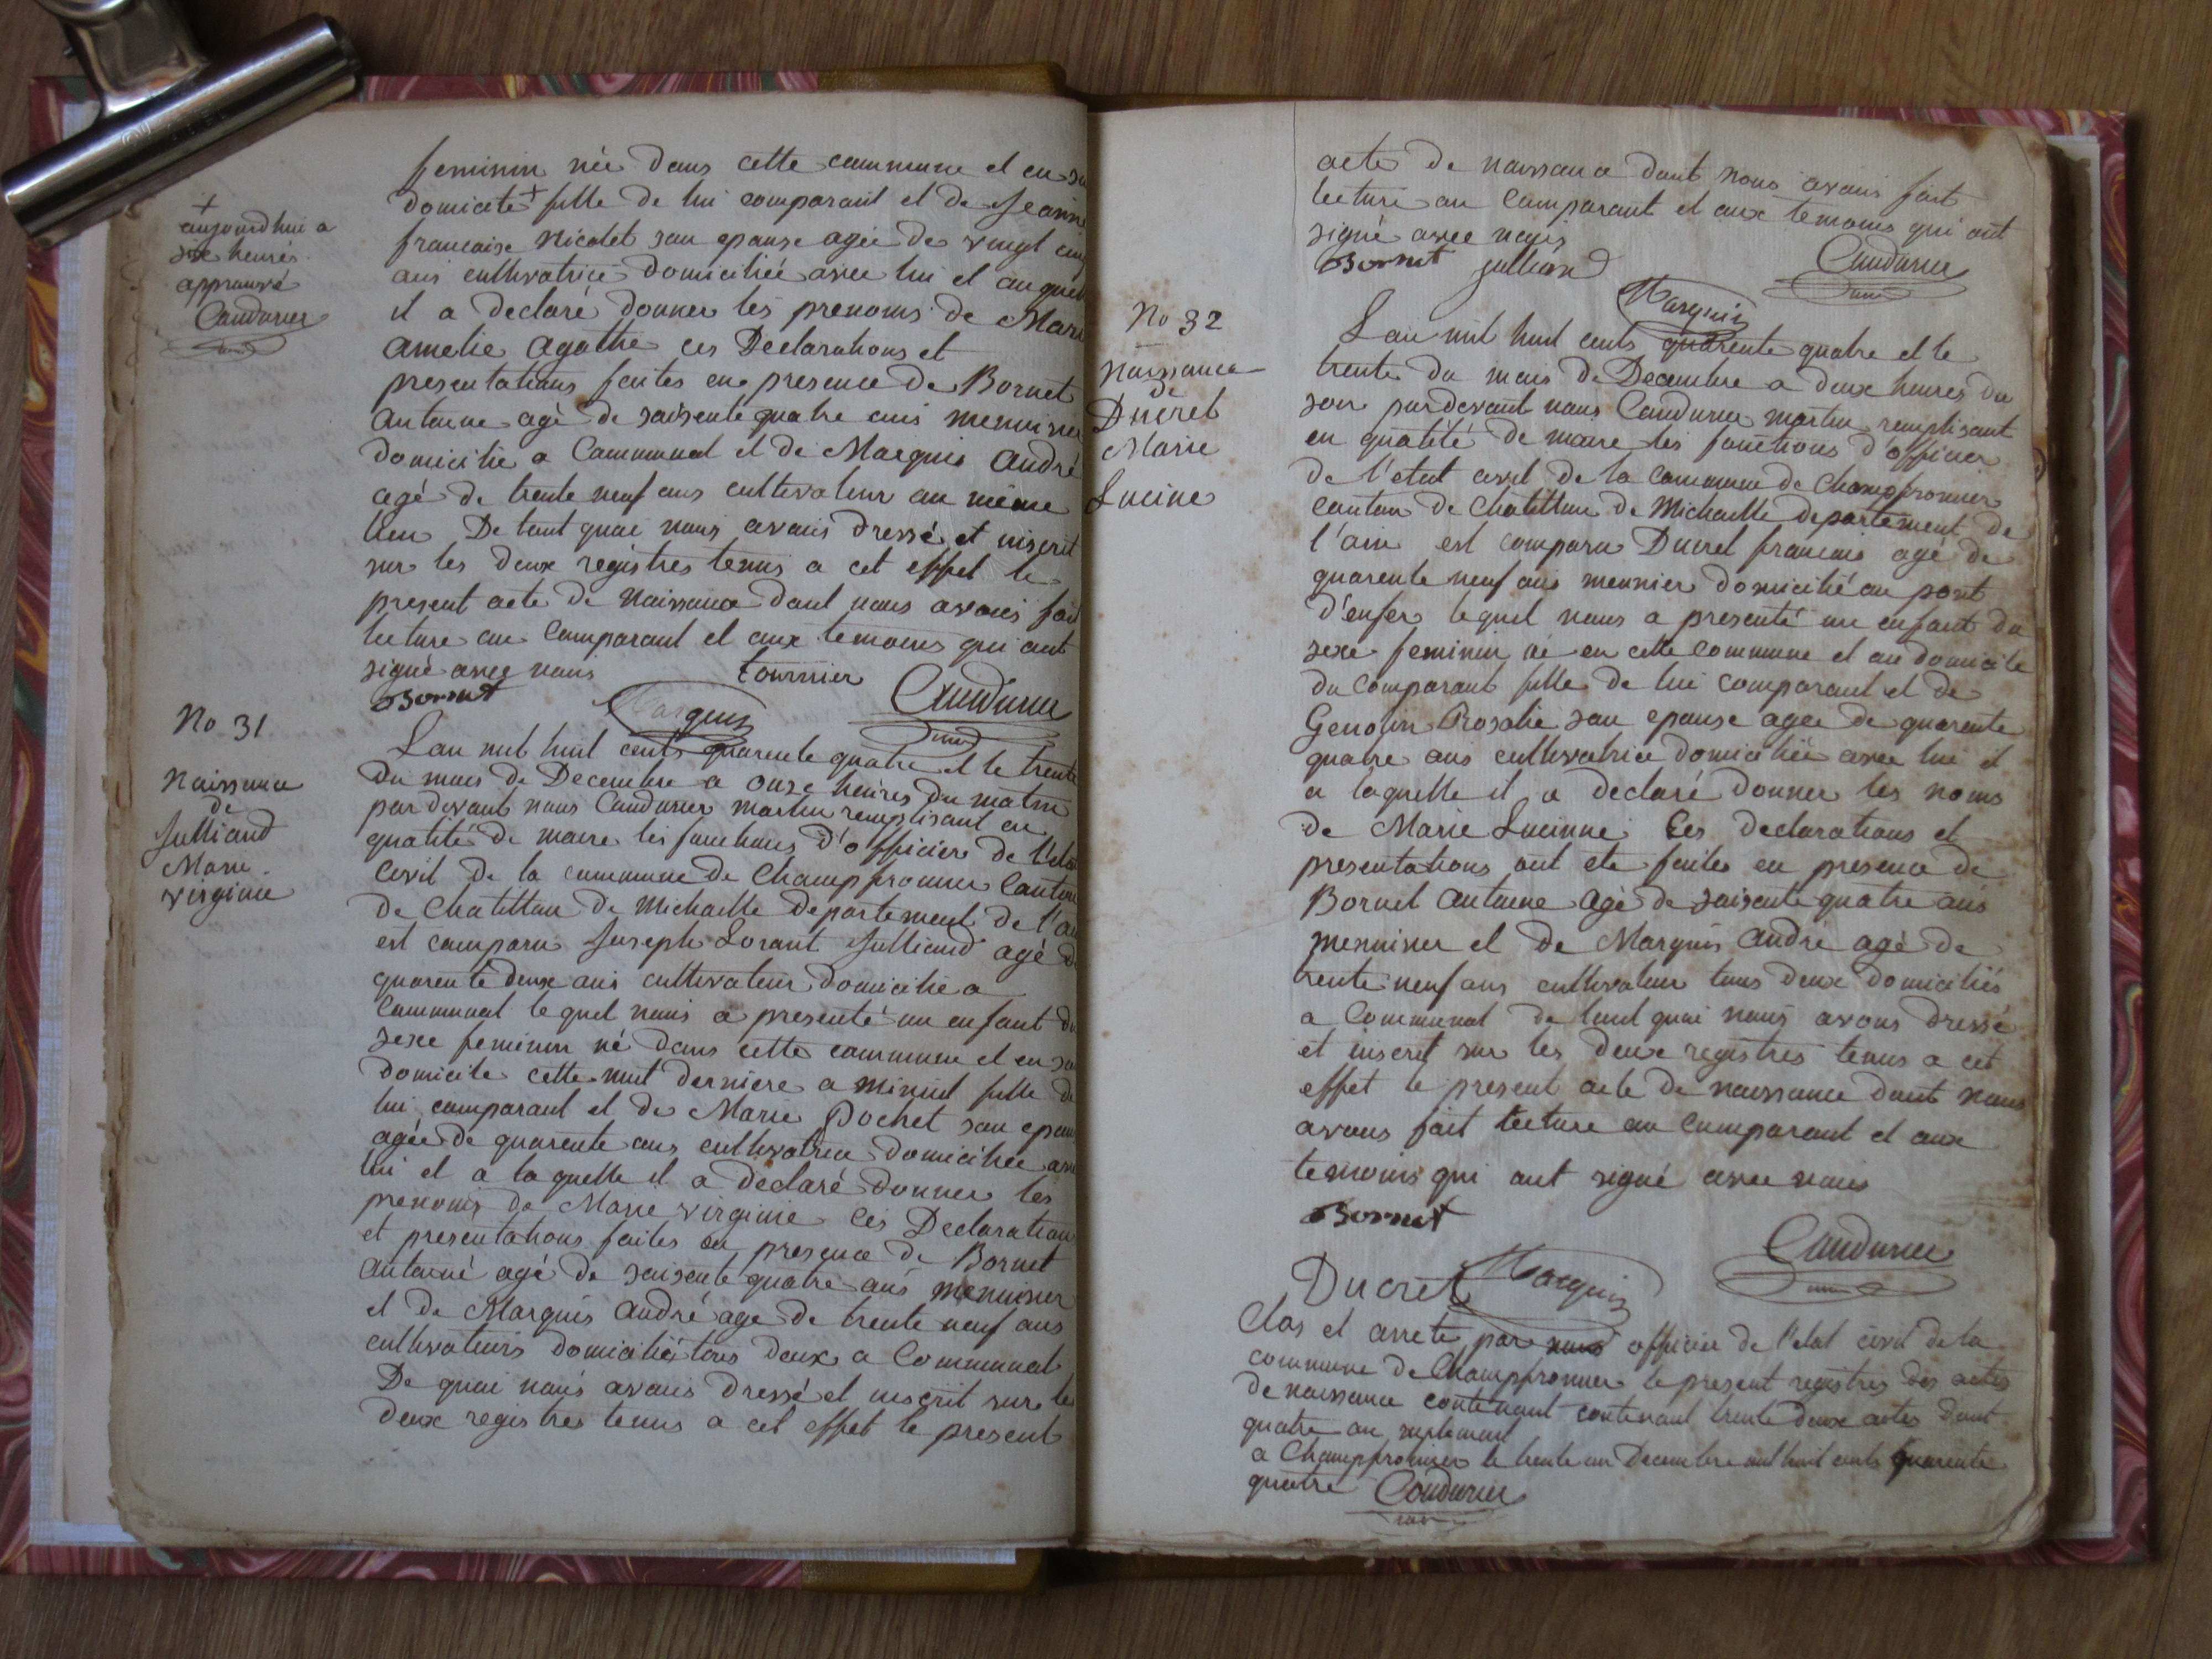 feminin née dans cette commune et en so
domicile + fille de lui comparant et de Jeanne
francaise Nicolet son epouse agée de vingt cinq
ans cultivatrice domiciliée avec lui et auquel
il a declaré donner les prenoms de Mari
amelie agathe ces Declarations et
presentations faites en presence de Bornet
antoine agé de soisente quatre ans menuisier
domicilié a Communal et de Marquis André
agé de trente neuf ans cultivateur au même
lieu De tout quoi nous avons dressé et inscrit
sur les deux registres tenus a cet effet le
present acte de Naissance dont nous avons fait
lecture au comparant et aux temoins qui ont
signé avec nous
tournier
Bornet
Marquis
Coudurier
+
aujourdhui a
six heures
approuvé
Coudurier
No 31
Naissance
de
Julliand
Marie
virginie
Lan mil huit cents quarente quatre et le trente
du mois de Decembre a onze heures du matin
pardevant nous Coudurier martin remplisant en
qualité de maire les fonctions d'officier de l'etat
civil de la commune de Champfromier Canton
de Chatillon de Michaille departement de l'ain
est comparu Joseph Lorant Julliand agé de
quarente deux ans cultivateur domicilié a
Communal lequel nous a presenté un enfant du
sexe feminin né dans cette commune et en son
domicile cette nuit derniere a minuit fille de
lui comparant et de Marie Pochet son epouse
agée de quarente ans cultivatrice domiciliée avec
lui et a laquelle il a declaré donner les
prenoms de Marie virginie Ces Declarations
et presentations faites en presence de Bornet
antoine agé de soisente quatre ans menuisier
et de Marquis André age de trente neuf ans
cultivateurs domiciliés tous deux a Communal
De quoi nous avons dressé et inscrit sur les
deux registres tenus a cet effet le present
acte de naissance dont nous avons fait
lecture au Comparant et aux temoins qui ont
signé avec nous
Bornet julliand
Coudurier
Marquis
No 32
Naissance
de
Ducret
Marie
Lucine
Lan mil huit cents quarente quatre et le
trente du mois de Decembre a deux heures du
soir pardevant nous Coudurier martin remplisant
en qualité de maire les fonctions d'officier
de l'etat civil de la commune de Champfromier
canton de Chatillon de Michaille departement de
l'ain est comparu Ducret francais agé de
quarente neuf ans meunier domicilié au pont
d'enfer lequel nous a presenté un enfant du
sexe feminin né en cette commune et au domicile
du comparant fille de lui comparant et de
Genolin Rosalie son epouse agee de quarente
quatre ans cultivatrice domiciliée avec lui et
a laquelle il a declaré donner les noms
de Marie Lucinne Ces declarations et
presentations ont ete faites en presence de
Bornet antoine agé de soisente quatre ans
menuisier et de Marquis andré agé de
trente neuf ans cultivateur tous deux domiciliés
a Communal de tout quoi nous avons dressé
et inscrit sur les deux registres tenus a cet
effet le present acte de naissance dont nous
avons fait lecture au comparant et aux
temoins qui ont signé avec nous
Bornet
Coudurier
Ducret Marquis
Clos et arreté par nous officier de l'etat civil de la
commune de Champfromier le present registres des actes
de naissance contenant contenant trente deux actes dont
quatre au suplement
a Champfromier le trente un Decembre mil huit cents quarente
quatre Coudurier